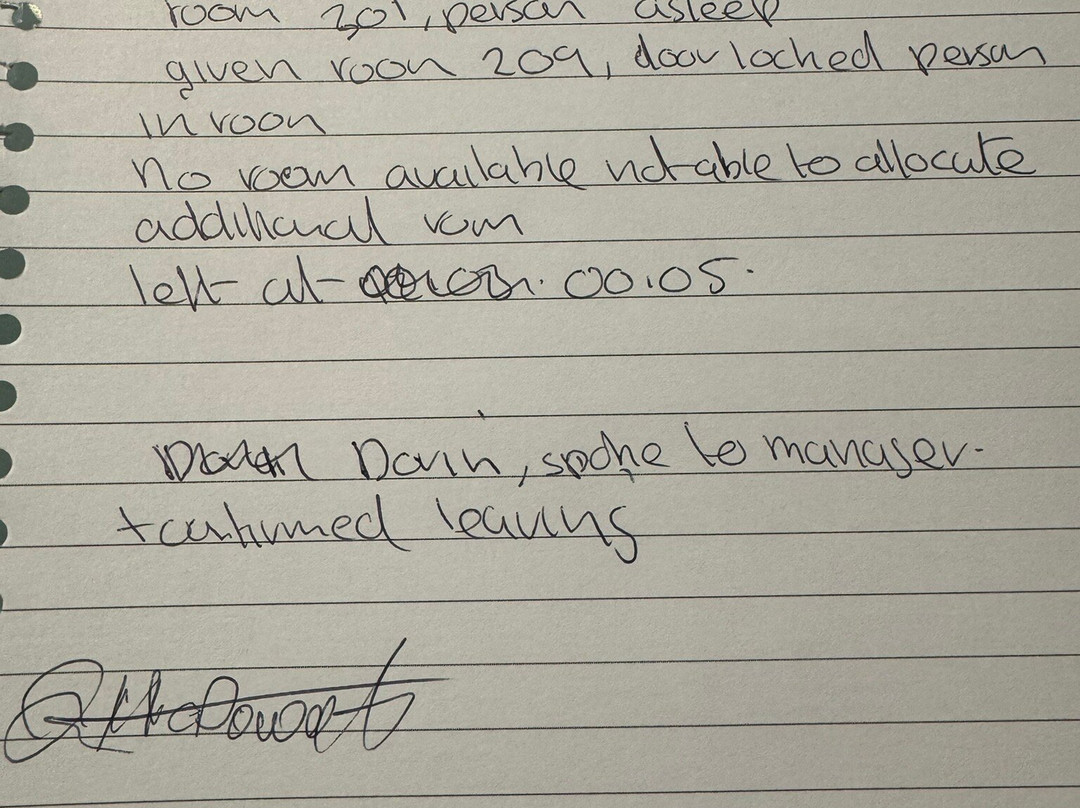 room 201, person asleep
given room 209, door locked person
in room
No room available not able to allocate
additional room
left at 00.05.
Darin, spoke to manager
+ confirmed leaving